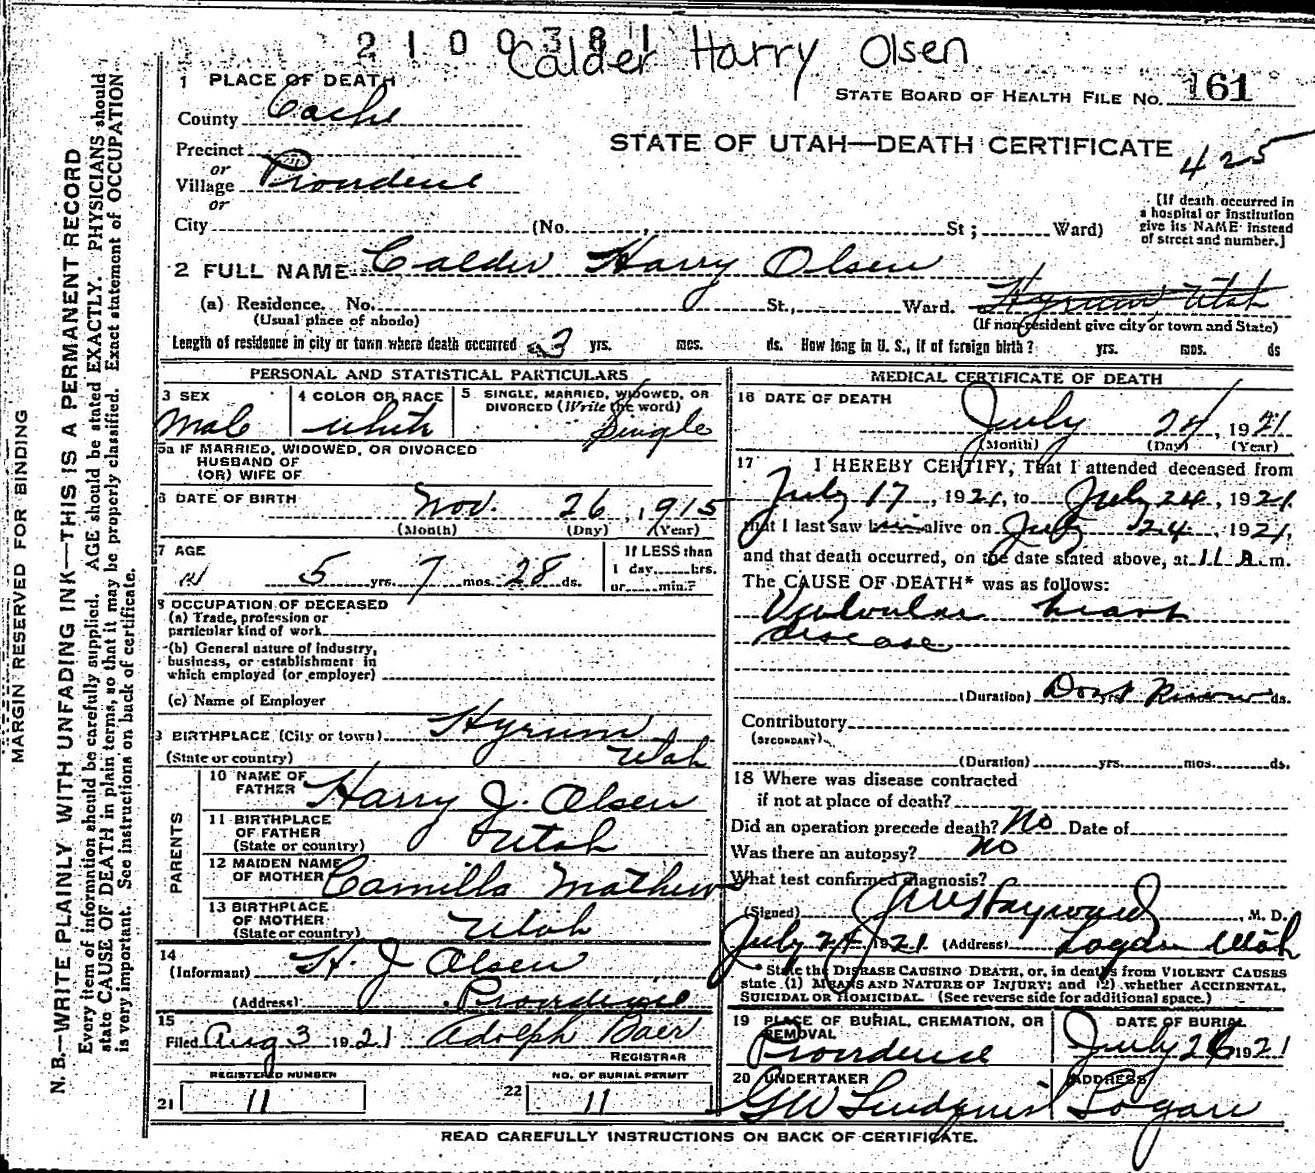 2100381
Calder Harry Olsen
1 PLACE OF DEATH
STATE BOARD OF HEALTH FILE NO. 161
County Cache
STATE OF UTAH—DEATH CERTIFICATE
425
Precinct
or
Village Providence
or
[If death occurred in
a hospital or institution
give its NAME instead
of street and number.]
City (No. , St ; Ward)
2 FULL NAME Calder Harry Olsen
(a) Residence. No. St., Ward. Hyrum, Utah
(Usual place of abode) (If non-resident give city or town and State)
Length of residence in city or town where death occurred 3 yrs. mos. ds. How long in U. S., if of foreign birth? yrs. mos. ds
PERSONAL AND STATISTICAL PARTICULARS
3 SEX Male
4 COLOR OR RACE white
5 SINGLE, MARRIED, WIDOWED, OR
DIVORCED (Write the word)
Single
5a IF MARRIED, WIDOWED, OR DIVORCED
HUSBAND OF
(OR) WIFE OF
6 DATE OF BIRTH Nov. 26, 1915
(Month) (Day) (Year)
7 AGE 5 yrs. 7 mos. 28 ds.
If LESS than
1 day.....hrs.
or.....min.?
8 OCCUPATION OF DECEASED
(a) Trade, profession or
particular kind of work
(b) General nature of industry,
business, or establishment in
which employed (or employer)
(c) Name of Employer
9 BIRTHPLACE (City or town) Hyrum
(State or country) Utah
PARENTS
10 NAME OF
FATHER Harry J. Olsen
11 BIRTHPLACE
OF FATHER
(State or country) Utah
12 MAIDEN NAME
OF MOTHER Camilla Mathews
13 BIRTHPLACE
OF MOTHER
(State or country) Utah
14
(Informant) H. J Olsen
(Address) Providence
15
Filed Aug 3 1921 Adolph Baer
REGISTRAR
REGISTERED NUMBER
21 11
NO. OF BURIAL PERMIT
22 11
MEDICAL CERTIFICATE OF DEATH
16 DATE OF DEATH
July 24, 1921
(Month) (Day) (Year)
17 I HEREBY CERTIFY, That I attended deceased from
July 17, 1921, to July 24, 1921.
that I last saw him alive on July 24, 1921,
and that death occurred, on the date stated above, at 11 A. m.
The CAUSE OF DEATH* was as follows:
Valvular heart
disease
(Duration) Dont Know ds.
Contributory
(SECONDARY)
(Duration) yrs. mos. ds.
18 Where was disease contracted
if not at place of death?
Did an operation precede death? No Date of
Was there an autopsy? No
What test confirmed diagnosis?
(Signed) J W Hayward, M. D.
July 24 1921 (Address) Logan Utah
* State the DISEASE CAUSING DEATH, or, in deaths from VIOLENT CAUSES
state (1) MEANS AND NATURE OF INJURY; and (2) whether ACCIDENTAL,
SUICIDAL OR HOMICIDAL. (See reverse side for additional space.)
19 PLACE OF BURIAL, CREMATION, OR
REMOVAL
Providence
DATE OF BURIAL
July 26 1921
20 UNDERTAKER
G W Lindquist
ADDRESS
Logan
READ CAREFULLY INSTRUCTIONS ON BACK OF CERTIFICATE.
MARGIN RESERVED FOR BINDING
N. B.—WRITE PLAINLY WITH UNFADING INK—THIS IS A PERMANENT RECORD
Every item of information should be carefully supplied. AGE should be stated EXACTLY. PHYSICIANS should
state CAUSE OF DEATH in plain terms, so that it may be properly classified. Exact statement of OCCUPATION
is very important. See instructions on back of certificate.